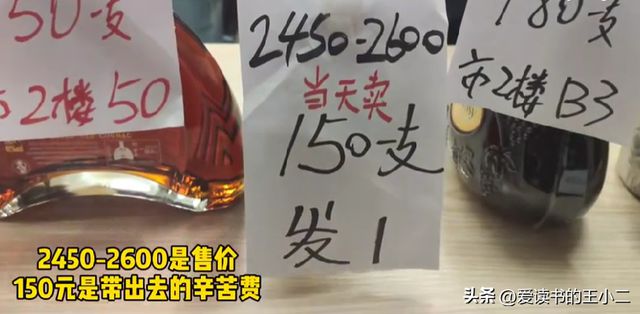 50一支
市2楼50
2450-2600
当天卖
150一支
发1
180支
市2楼B3
2450-2600是售价
150元是带出去的辛苦费
头条 @爱读书的王小二